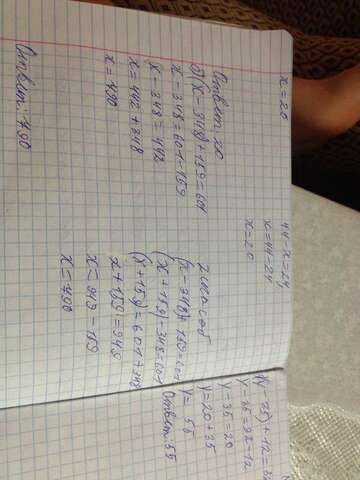 x=20
Ответ: 20
б) (x-348)+159=601
x-348=601-159
x-348=442
x=442+348
x=790
Ответ: 790
44-x=24
x=44-24
x=20
2 способ
(x-348)+159=601
(x+159)-348=601
(x+159)=601+348
x+159=949
x=949-159
x=790
y-35=32-12
y-35=20
y=20+35
y=55
Ответ: 55